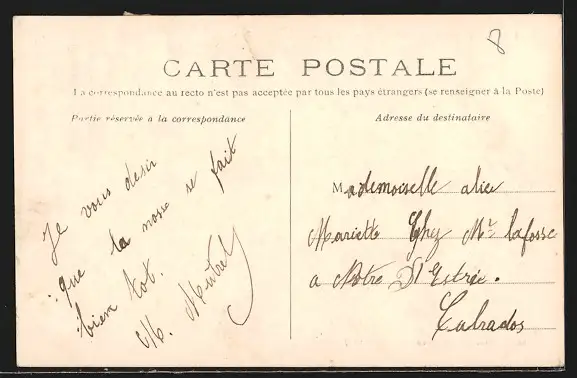 8
CARTE POSTALE
La correspondance au recto n'est pas acceptée par tous les pays étrangers (se renseigner à la Poste)
Partie réservée à la correspondance
Adresse du destinataire
Je vous desir
que la nosse se fait
bien tot.
M. Mutrel
Mademoiselle alice
Mariette Chez Mr lafosse
a Notre D'Estrée.
Calvados